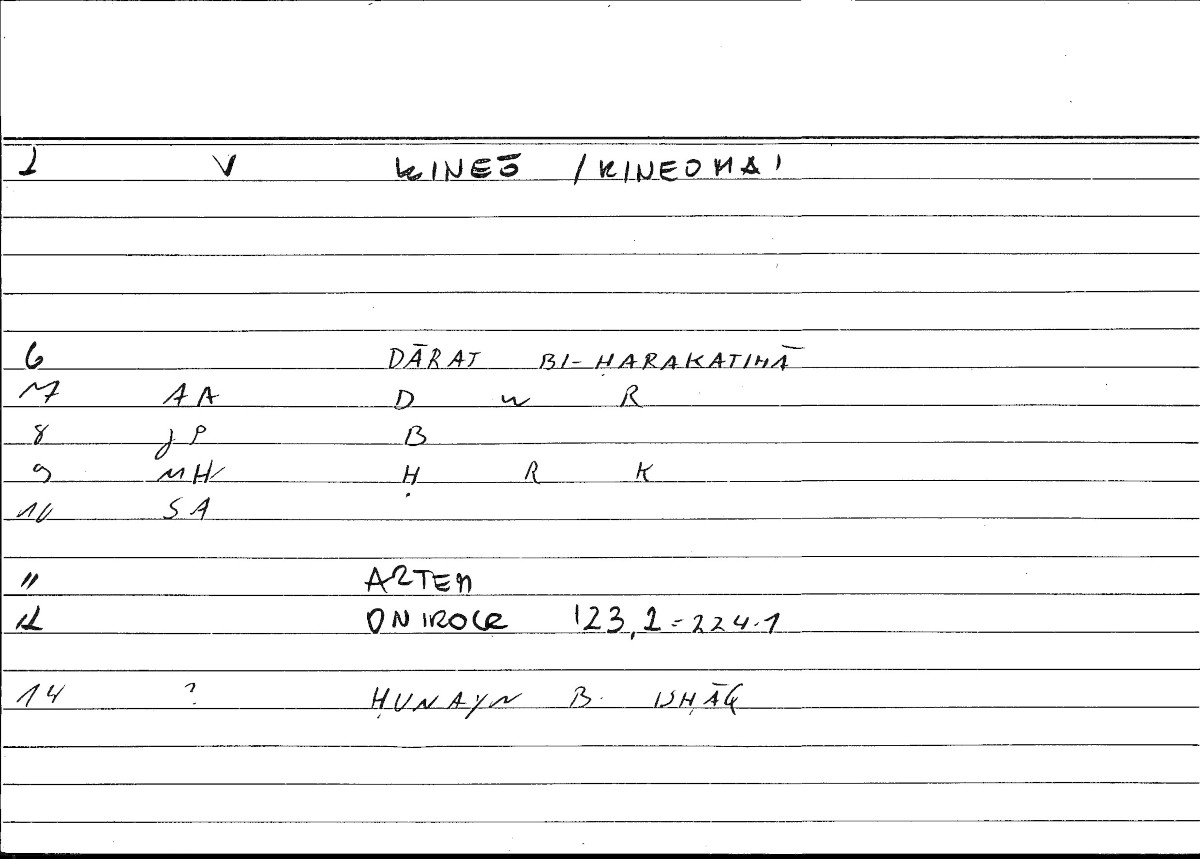 1 V KINEŌ /KINEOMAI
6 DĀRAT BI-ḤARAKATIHĀ
7 AA D W R
8 JP B
9 MH Ḥ R K
10 SA
11 ARTEM
12 ONIROCR 123,2=224.1
14 ? ḤUNAYN B. ISḤĀQ